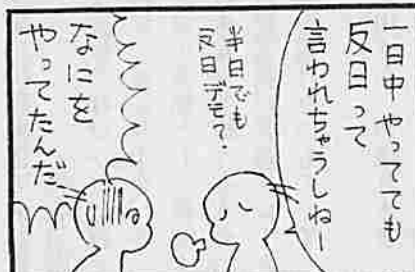 一日中やってても
反日って
言われちゃうしねー
半日でも
反日デモ?
なにを
やってたんだ